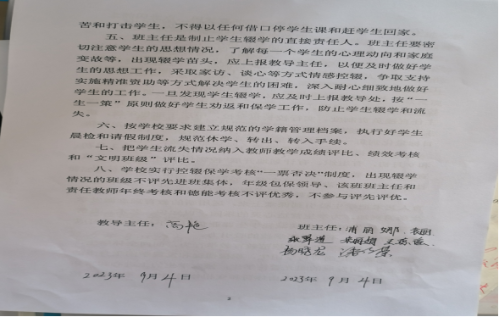 苦和打击学生，不得以任何借口停学生课和赶学生回家。
五、班主任是制止学生辍学的直接责任人。班主任要密
切注意学生的思想情况，了解每一个学生的心理动向和家庭
变故等，出现辍学苗头，应上报教导主任，以便及时做好学
生的思想工作，采取家访、谈心等方式情感控辍，争取支持
实施精准资助等方式解决学生的困难，深入耐心细致地做好
学生的工作。一旦发现学生辍学，应及时上报教导处，按“一
生一策”原则做好学生劝返和保学工作，防止学生辍学和流
失。
六、按学校要求建立规范的学籍管理档案，执行好学生
晨检和请假制度，规范休学、转出、转入手续。
七、把学生流失情况纳入教师教学成绩评比、绩效考核
和“文明班级”评比。
八、学校实行控辍保学考核“一票否决”制度，出现辍学
情况的班级不评先进班集体，年级包保领导、该班班主任和
责任教师年终考核和德能考核不评优秀，不参与评先评优。
教导主任： 班主任：
2023年 9月4日 2023年 9月4日